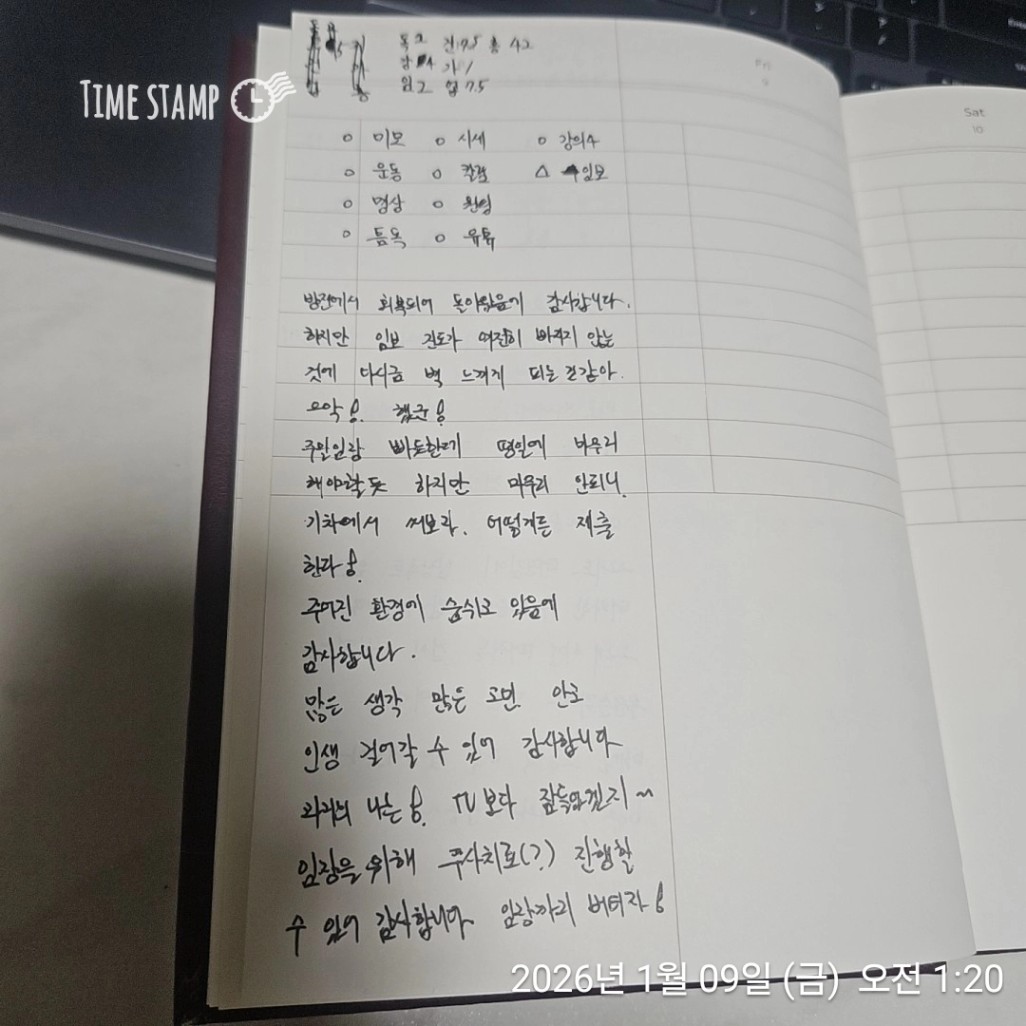 TIME STAMP
독2 건7.5 총 42
강4 기1
임2 업7.5
Fri
9
Sat
10
o 미모 o 시세 o 강의4
o 운동 o 칼럼 △ 임보
o 명상 o 확언
o 틈독 o 유튜
방전에서 회복되어 돌아왔음에 감사합니다.
하지만 임보 진도가 여전히 빠르지 않는
것에 다시금 벽 느끼게 되는 것 같아.
요약!. 했군!
주말일랑 빠듯한데 평일에 마무리
해야할듯 하지만 마무리 안되니.
기차에서 써보라. 어떻게든 제출
한다!.
주어진 환경에 숨쉬고 있음에
감사합니다.
많은 생각 많은 고민 안고
인생 걸어갈 수 있어 감사합니다
과거의 나는!. TV보다 잠들었겠지~
임장을 위해 주사치료(?) 진행할
수 있어 감사합니다 임장까지 버티자!
2026년 1월 09일 (금) 오전 1:20